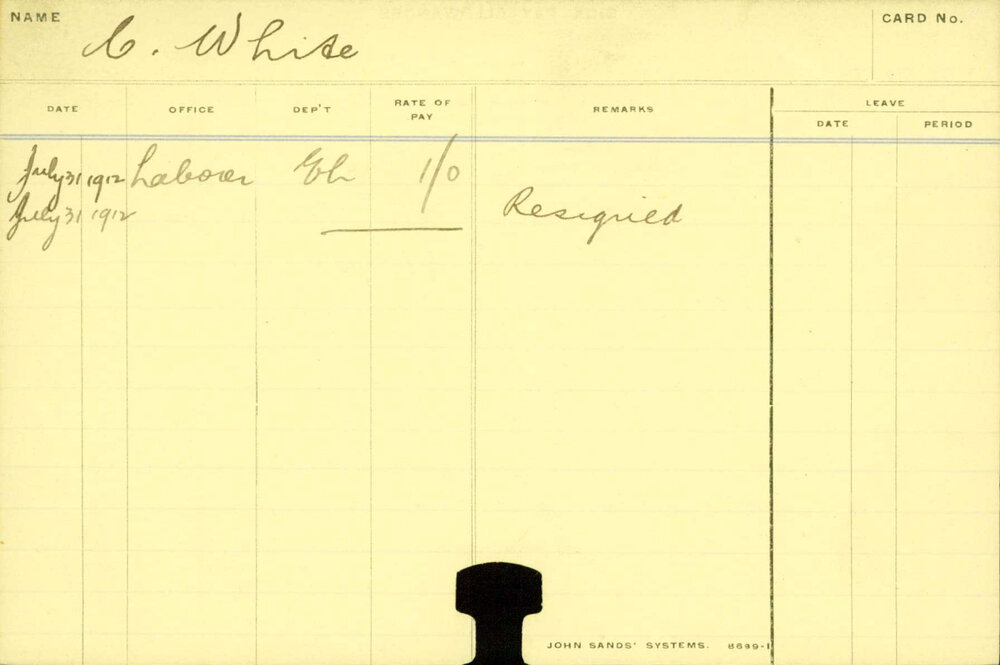 NAME C. White CARD No.
DATE OFFICE DEP'T RATE OF PAY REMARKS LEAVE
DATE PERIOD
July 31 1912 Laborer 1/0
July 31 1912 Resigned
JOHN SANDS' SYSTEMS. 8699-1